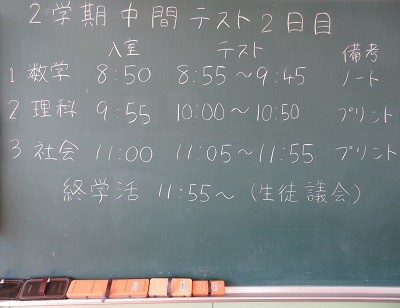 2学期中間テスト2日目
入室 テスト 備考
1 数学 8:50 8:55～9:45 ノート
2 理科 9:55 10:00～10:50 プリント
3 社会 11:00 11:05～11:55 プリント
終学活 11:55～ (生徒議会)